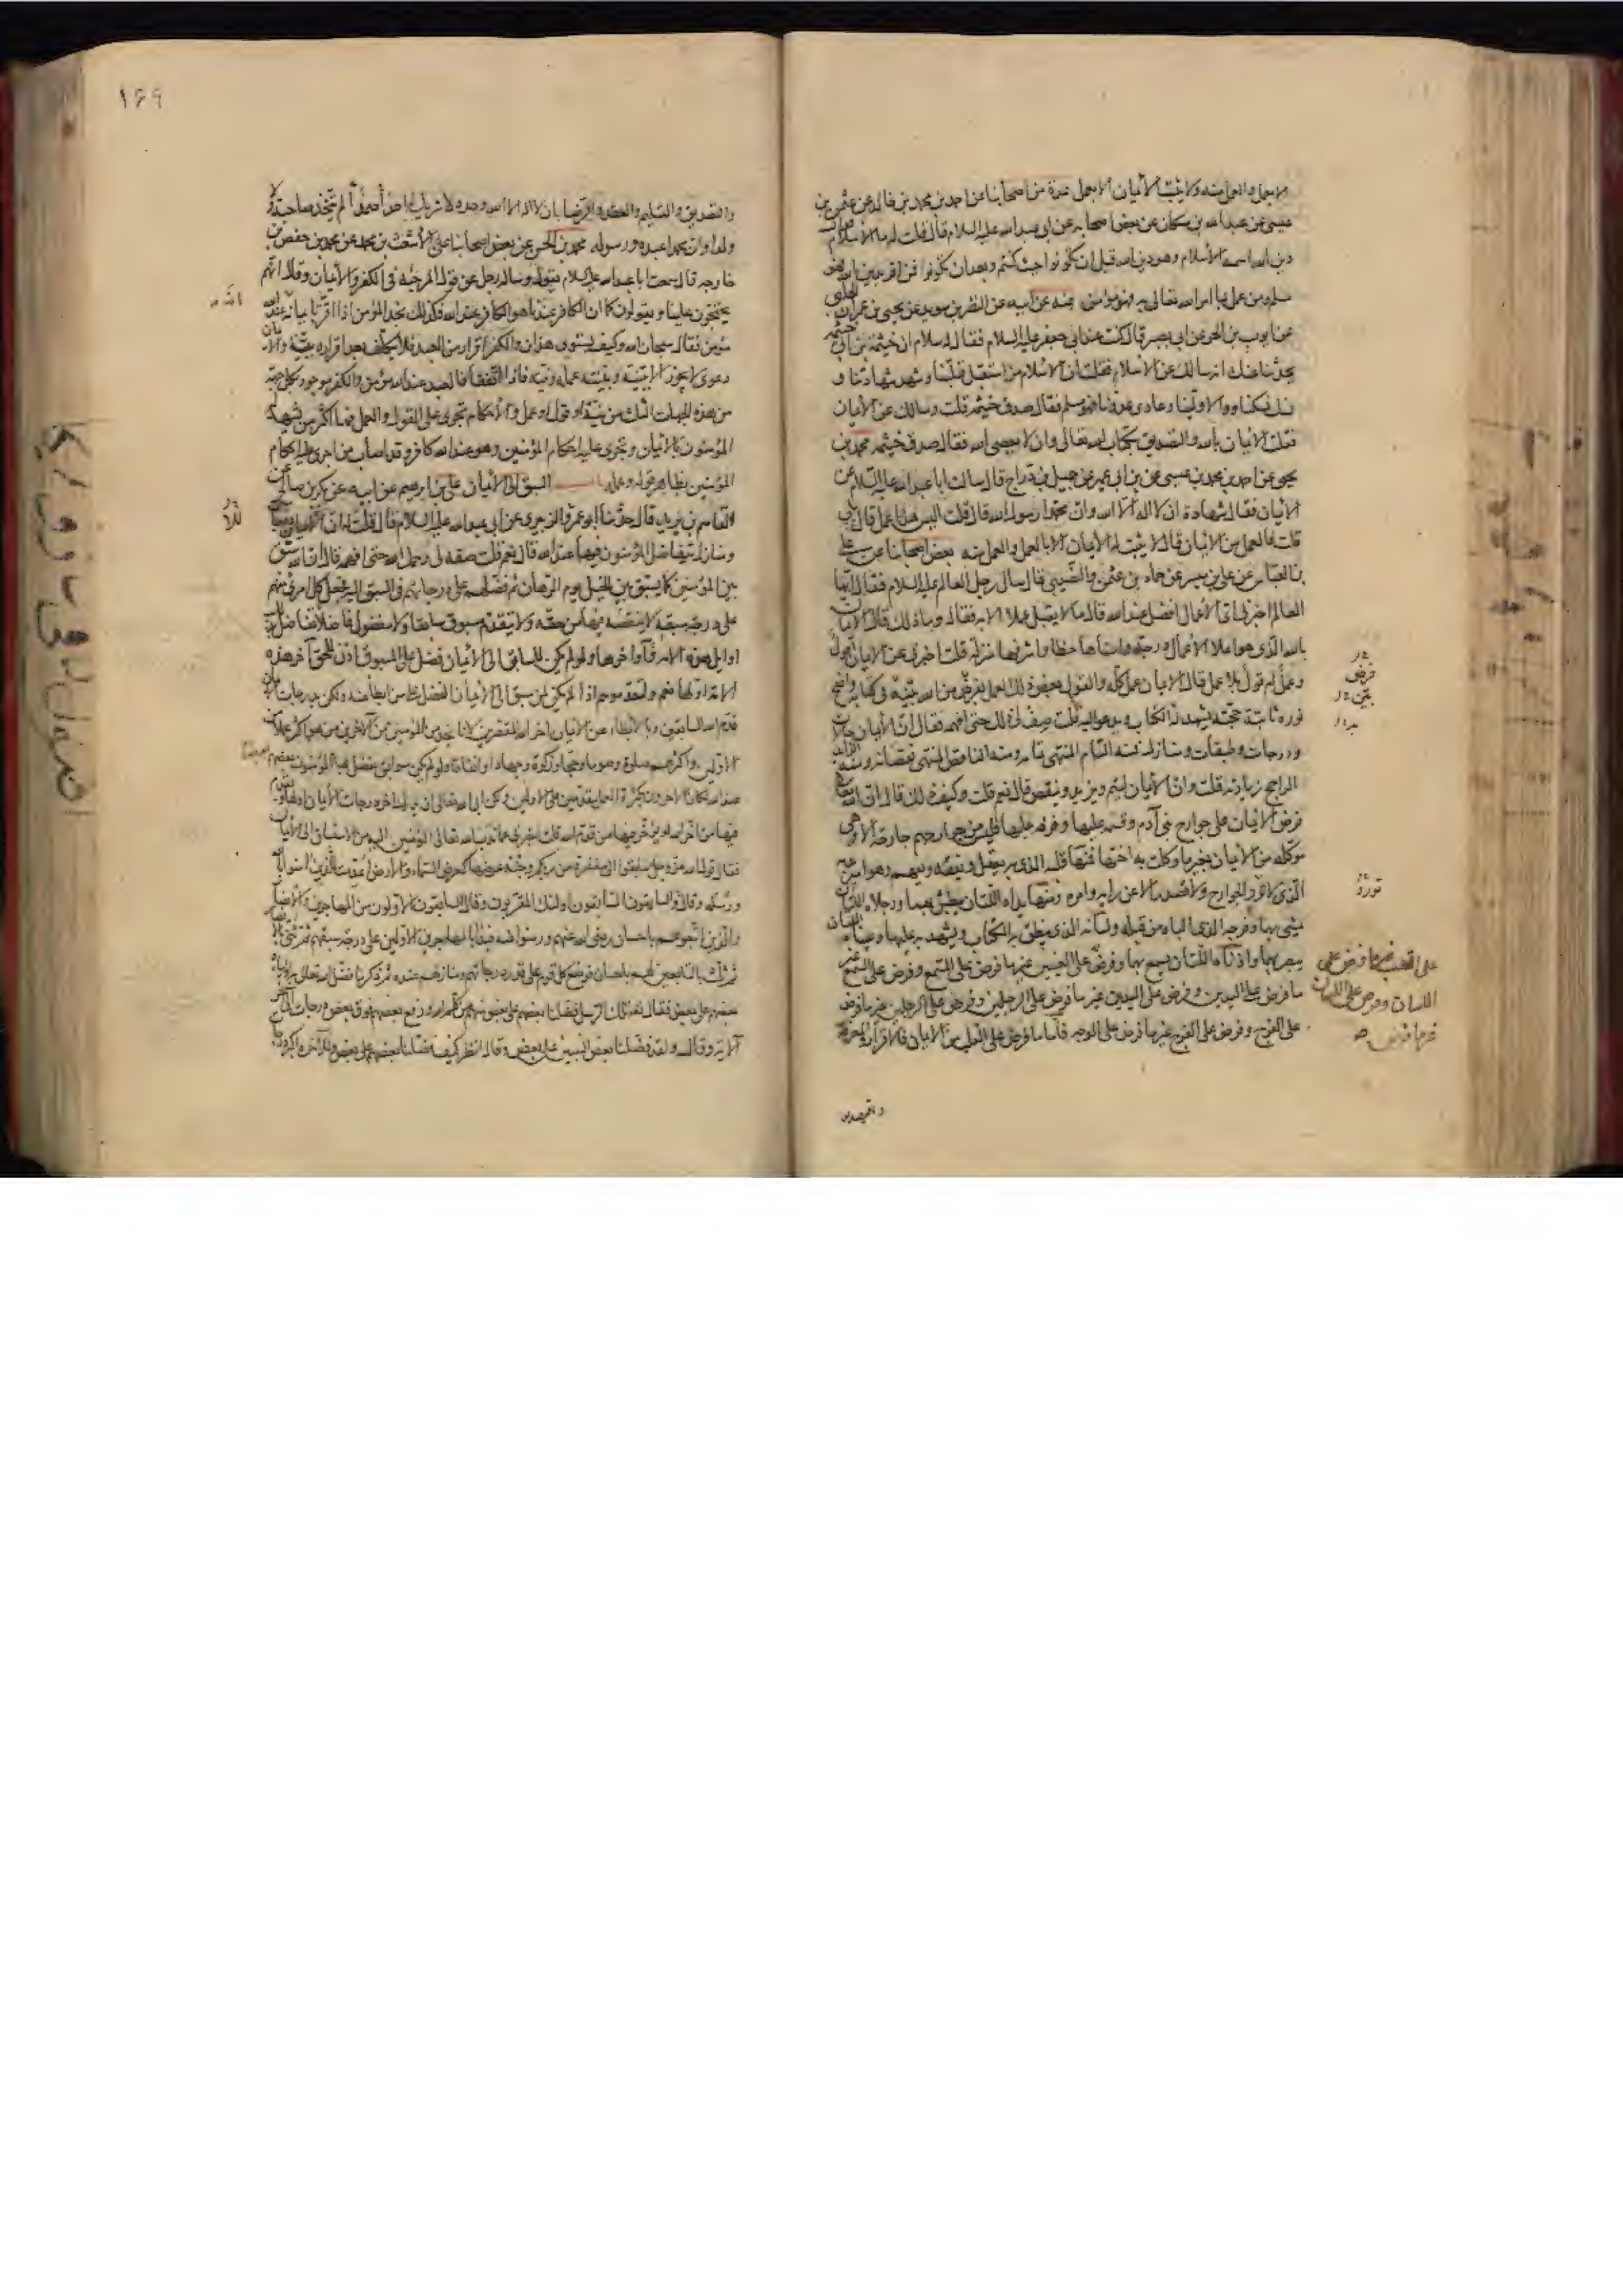 الا بعمل والعمل منه ولا يثبت الأيمان الا بعمل عدة من اصحابنا عن احمد بن محمد بن خالد عن عثمن بن
عيسى عن عبد الله بن مسكان عن بعض اصحابه عن ابى عبد الله عليه السلام قال قلت له ما الأسلام
دين الله اسمه الأسلام وهو دين الله قبل ان تكونوا حيث كنتم وبعد ان تكونوا فمن اقر بدين الله فهو
مسلم ومن عمل بما امر الله تعالى به فهو مؤمن عنه عن ابيه عن النضر بن سويد عن يحيى بن عمران الحلبى
عن ايوب بن الحر عن ابى بصير قال كنت عند ابى جعفر عليه السلام فقال له سلام ان خيثمة بن ابى خيثمة
يحدثنا عنك انه سالك عن الأسلام فقلت ان الأسلام من استقبل قبلتنا وشهد شهادتنا و
نسك نسكنا ووالى ولينا وعادى عدونا فهو مسلم فقال صدق خيثمة قلت وسالك عن الأيمان
فقلت الأيمان بالله والتصديق بكتاب الله تعالى وان لا يعصى الله فقال صدق خيثمة محمد بن
يحيى عن احمد بن محمد بن عيسى عن بن ابى عمير عن جميل بن دراج قال سالت ابا عبد الله عليه السلام عن
الأيمان فقال شهادة ان لا اله الا الله وان محمدا رسول الله قال قلت اليس هذا عمل قال بلى
قلت فالعمل من الأيمان قال لا يثبت له الأيمان الا بالعمل والعمل منه بعض اصحابنا عن على
بن العباس عن على بن ميسر عن حماد بن عثمن والنصيبى قال سال رجل العالم عليه السلام فقال ايها
العالم اخبرنى اى الأعمال افضل عند الله قال ما لا يقبل عملا الا به فقال وما ذلك قال الأيمان
بالله الذى هو اعلا الأعمال درجة واسناها حظا واشرفها منزلة قلت اخبرنى عن الأيمان اقول
وعمل ام قول بلا عمل قال الأيمان عمل كله والقول بعض ذلك العمل بفرض من الله بينه فى كتابه واضح
نوره ثابتة حجته يشهد له الكتاب ويدعو اليه قلت صف لى ذلك حتى افهمه فقال ان الأيمان حالات
ودرجات وطبقات ومنازل فمنه التام المنتهى تمامه ومنه الناقص المنتهى نقصانه ومنه
الراجح زيادته قلت وان الأيمان ليتم ويزيد وينقص قال نعم قلت وكيف ذلك قال ان الله تعالى
فرض الأيمان على جوارح بنى آدم وقسمه عليها وفرقه عليها فليس من جوارحهم جارحة الا وهى
موكلة من الأيمان بغير ما وكلت به اختها فمنها قلبه الذى به يعقل ويفقه ويفهم وهو امير بدنه
الذى لا ترد الجوارح ولا تصدر الا عن رايه وامره ومنها يداه اللتان يبطش بهما ورجلاه اللتان
يمشى بهما وفرجه الذى الباه من قبله ولسانه الذى ينطق به الكتاب ويشهد به عليها وعيناه اللتان
يبصر بهما واذناه اللتان يسمع بهما وفرض على العينين غير ما فرض على السمع وفرض على السمع غير
ما فرض على اليدين وفرض على اليدين غير ما فرض على الرجلين وفرض على الرجلين غير ما فرض
على الفرج وفرض على الفرج غير ما فرض على الوجه فاما ما فرض على القلب من الأيمان فالاقرار والمعرفة
والتصديق
فرض
تورد
على القلب غير ما فرض على
اللسان وفرض على اللسان
غير ما فرض
١٤٩
والتصديق والتسليم والعقد والرضا بان لا اله الا الله وحده لا شريك له احدا صمدا لم يتخذ صاحبة ولا
ولدا وان محمدا عبده ورسوله محمد بن الحسن عن بعض اصحابنا عن الأشعث بن محمد عن محمد بن حفص بن
خارجه قال سمعت ابا عبد الله عليه السلام يقول وساله رجل عن قول المرجئة فى الكفر والأيمان وقال انهم
يحتجون علينا ويقولون كما ان الكافر عندنا هو الكافر عند الله فكذلك نجد المؤمن اذا اقر بايمانه انه عند الله
مؤمن فقال سبحان الله وكيف يستوى هذان والكفر اقرار من العبد فلا يكلف بعد اقراره ببينة والأيمان
دعوى لا يجوز الا ببينة وبينته عمله ونيته فاذا اتفقا فالعبد عند الله مؤمن والكفر موجود بكل جهة
من هذه الجهات الثلث من نية او قول او عمل والأحكام تجرى على القول والعمل فما اكثر من يشهد له
المؤمنون بالأيمان ويجرى عليه احكام المؤمنين وهو عند الله كافر وقد اصاب من اجرى عليه احكام
المؤمنين بظاهر قوله وعمله باب السبق الى الأيمان على بن ابرهيم عن ابيه عن بكر بن صالح عن
القاسم بن بريد قال حدثنا ابو عمرو الزبيرى عن ابى عبد الله عليه السلام قال قلت له ان للأيمان درجات
ومنازل يتفاضل المؤمنون فيها عند الله قال نعم قلت صفه لى رحمك الله حتى افهمه قال ان الله سبق
بين المؤمنين كما يسبق بين الخيل يوم الرهان ثم فضلهم على درجاتهم فى السبق اليه فجعل كل امرئ منهم
على درجة سبقه لا ينقصه فيها من حقه ولا يتقدم مسبوق سابقا ولا مفضول فاضلا تفاضل بذلك
اوايل هذه الامة واواخرها ولو لم يكن للسابق الى الأيمان فضل على المسبوق اذن للحق آخر هذه
الامة اولها نعم ولتقدموهم اذا لم يكن لمن سبق الى الأيمان الفضل على من ابطا عنه ولكن بدرجات الأيمان
قدم الله السابقين وبالأبطاء عن الأيمان اخر الله المقصرين لأنا نجد من المؤمنين من الآخرين من هو اكثر عملا من
الاولين واكثرهم صلوة وصوما وحجا وزكوة وجهادا وانفاقا ولو لم يكن سوابق يفضل بها المؤمنون بعضهم بعضا
عند الله لكان الآخرون بكثرة العمل مقدمين على الاولين ولكن ابى الله تعالى ان يدرك اخر درجات الأيمان اولها ويقدم
فيها من اخر الله او يؤخر فيها من قدم الله قلت اخبرنى عما ندب الله تعالى المؤمنين اليه من الاستباق الى الأيمان
فقال قول الله عز وجل سابقوا الى مغفرة من ربكم وجنة عرضها كعرض السماء والأرض اعدت للذين امنوا بالله
ورسله وقال والسابقون السابقون اولئك المقربون وقال السابقون الاولون من المهاجرين والأنصار
والذين اتبعوهم باحسان رضى الله عنهم ورضوا عنه فبدأ بالمهاجرين الاولين على درجة سبقهم ثم ثنى بالأنصار
ثم ثلث بالتابعين لهم باحسان فوضع كل قوم على قدر درجاتهم ومنازلهم عنده ثم ذكر ما فضل الله تعالى به اولياءه
بعضهم على بعض فقال تعالى تلك الرسل فضلنا بعضهم على بعض منهم من كلم الله ورفع بعضهم فوق بعض درجات الى آخر
الآية وقال ولقد فضلنا بعض النبيين على بعض وقال انظر كيف فضلنا بعضهم على بعض وللآخرة اكبر درجات